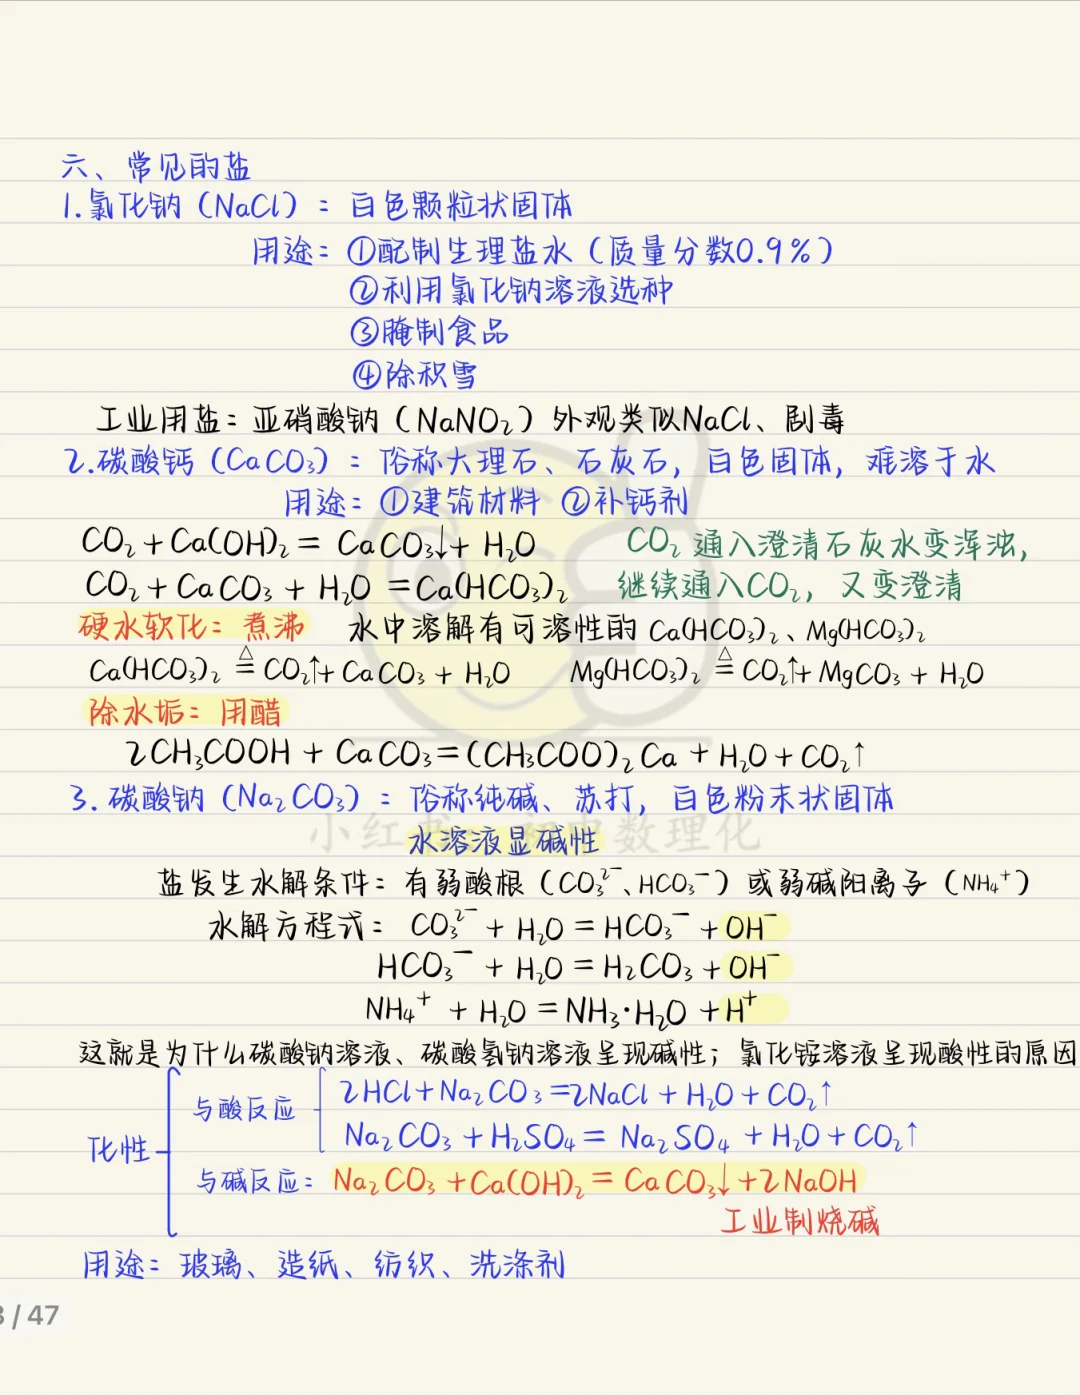 六、常见的盐
1.氯化钠（NaCl）：白色颗粒状固体
用途：①配制生理盐水（质量分数0.9%）
②利用氯化钠溶液选种
③腌制食品
④除积雪
工业用盐：亚硝酸钠（NaNO₂）外观类似NaCl、剧毒
2.碳酸钙（CaCO₃）：俗称大理石、石灰石，白色固体，难溶于水
用途：①建筑材料 ②补钙剂
CO₂+Ca(OH)₂=CaCO₃↓+H₂O CO₂通入澄清石灰水变浑浊，
CO₂+CaCO₃+H₂O=Ca(HCO₃)₂ 继续通入CO₂，又变澄清
硬水软化：煮沸 水中溶解有可溶性的Ca(HCO₃)₂、Mg(HCO₃)₂
Ca(HCO₃)₂ ≜ CO₂↑+CaCO₃+H₂O Mg(HCO₃)₂ ≜ CO₂↑+MgCO₃+H₂O
除水垢：用醋
2CH₃COOH+CaCO₃=(CH₃COO)₂Ca+H₂O+CO₂↑
3.碳酸钠（Na₂CO₃）：俗称纯碱、苏打，白色粉末状固体
小红书：初中数理化
水溶液显碱性
盐发生水解条件：有弱酸根（CO₃²⁻、HCO₃⁻）或弱碱阳离子（NH₄⁺）
水解方程式：CO₃²⁻+H₂O=HCO₃⁻+OH⁻
HCO₃⁻+H₂O=H₂CO₃+OH⁻
NH₄⁺+H₂O=NH₃·H₂O+H⁺
这就是为什么碳酸钠溶液、碳酸氢钠溶液呈现碱性；氯化铵溶液呈现酸性的原因
化性
与酸反应
2HCl+Na₂CO₃=2NaCl+H₂O+CO₂↑
Na₂CO₃+H₂SO₄=Na₂SO₄+H₂O+CO₂↑
与碱反应：Na₂CO₃+Ca(OH)₂=CaCO₃↓+2NaOH
工业制烧碱
用途：玻璃、造纸、纺织、洗涤剂
/47